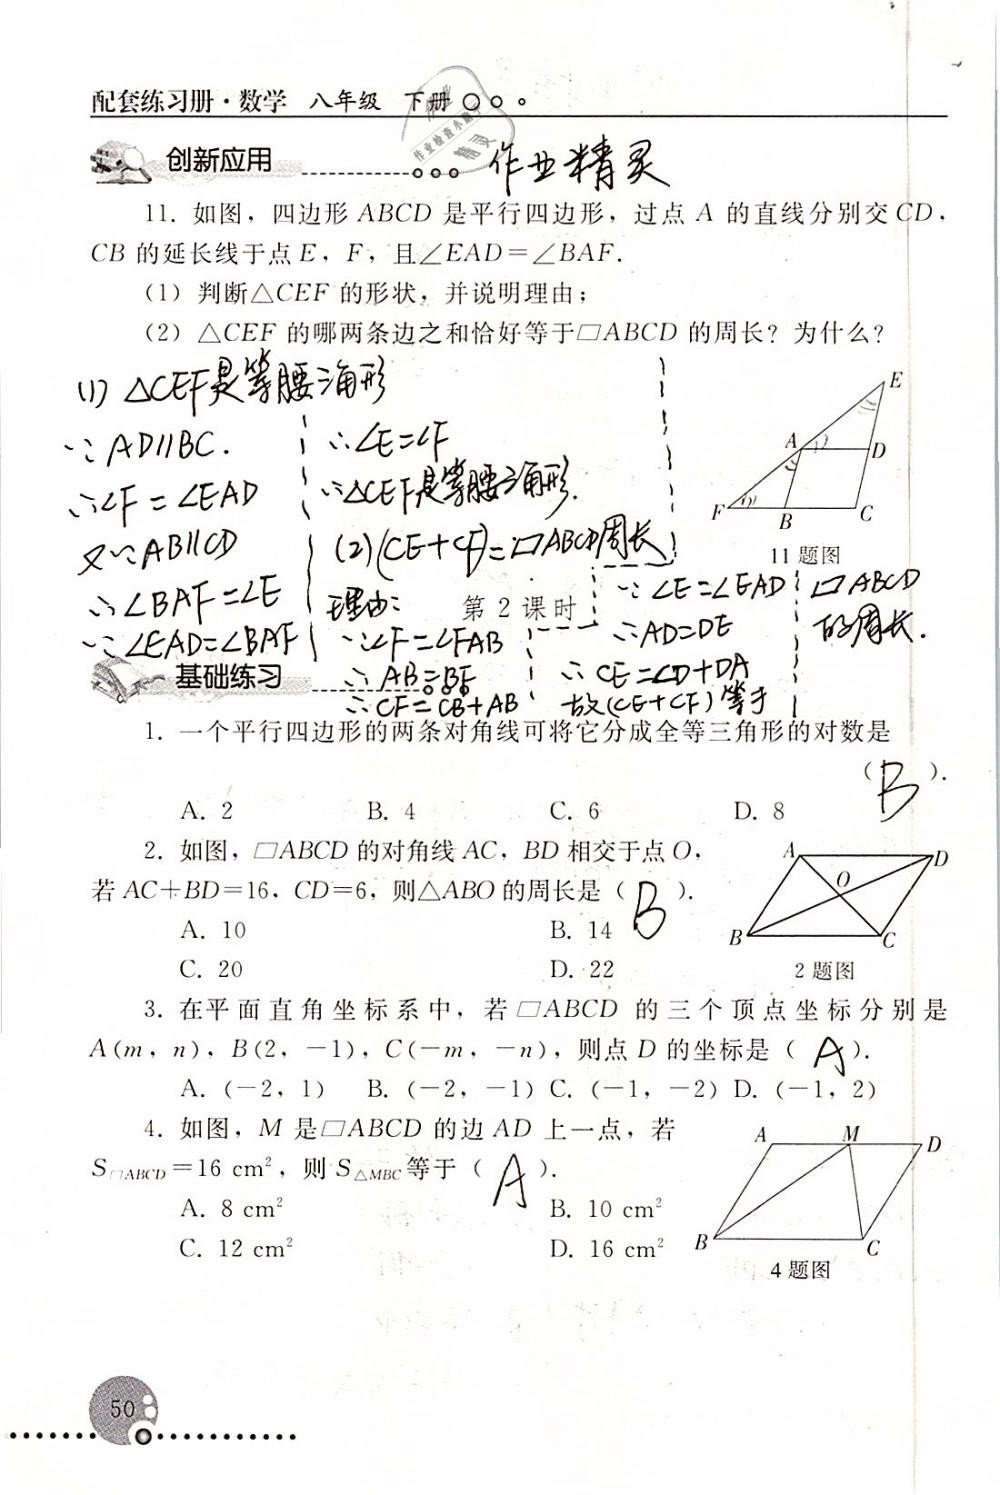 配套练习册·数学 八年级 下册
创新应用
作业精灵
11. 如图，四边形 ABCD 是平行四边形，过点 A 的直线分别交 CD，
CB 的延长线于点 E，F，且∠EAD=∠BAF.
（1）判断△CEF 的形状，并说明理由；
（2）△CEF 的哪两条边之和恰好等于▱ABCD 的周长？为什么？
(1) △CEF是等腰三角形
∵AD∥BC.
∴∠F=∠EAD
又∵AB∥CD
∴∠BAF=∠E
∵∠EAD=∠BAF
∴∠E=∠F
∴△CEF是等腰三角形.
(2)(CE+CF)=▱ABCD周长
理由:
∵∠F=∠FAB
∴AB=BF
∴CF=CB+AB
∵∠E=∠EAD
∴AD=DE
∴CE=CD+DA
故(CE+CF)等于
▱ABCD
的周长.
E
A
D
F
B
C
11 题图
第 2 课时
基础练习
1. 一个平行四边形的两条对角线可将它分成全等三角形的对数是
（B）.
A. 2 B. 4 C. 6 D. 8
2. 如图，▱ABCD 的对角线 AC，BD 相交于点 O，
若 AC+BD=16，CD=6，则△ABO 的周长是（B）.
A. 10 B. 14
C. 20 D. 22
A
D
O
B
C
2 题图
3. 在平面直角坐标系中，若▱ABCD 的三个顶点坐标分别是
A(m，n)，B(2，-1)，C(-m，-n)，则点 D 的坐标是（A）.
A. (-2，1) B. (-2，-1) C. (-1，-2) D. (-1，2)
4. 如图，M 是▱ABCD 的边 AD 上一点，若
S▱ABCD=16 cm²，则 S△MBC 等于（A）.
A. 8 cm² B. 10 cm²
C. 12 cm² D. 16 cm²
A
M
D
B
C
4 题图
50